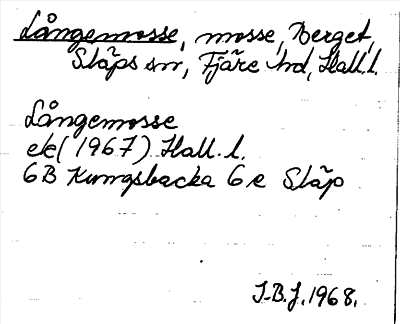 Långemosse, mosse, Berget,
Släps sn, Fjäre hd, Hall. l.
Långemosse
ek (1967) Hall. l.
6B Kungsbacka 6e Släp
I.B.J. 1968.